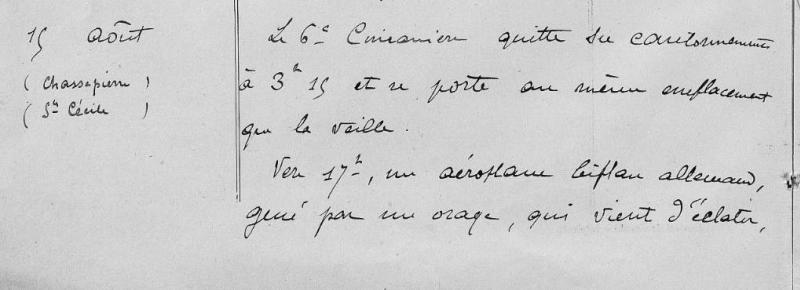 15 Août
(Chassepierre)
(Ste Cécile)
Le 6e Cuirassiers quitte ses cantonnements
à 3h 15 et se porte au même emplacement
que la veille.
Vers 17h, un aéroplane biplan allemand,
gêné par un orage, qui vient d'éclater,